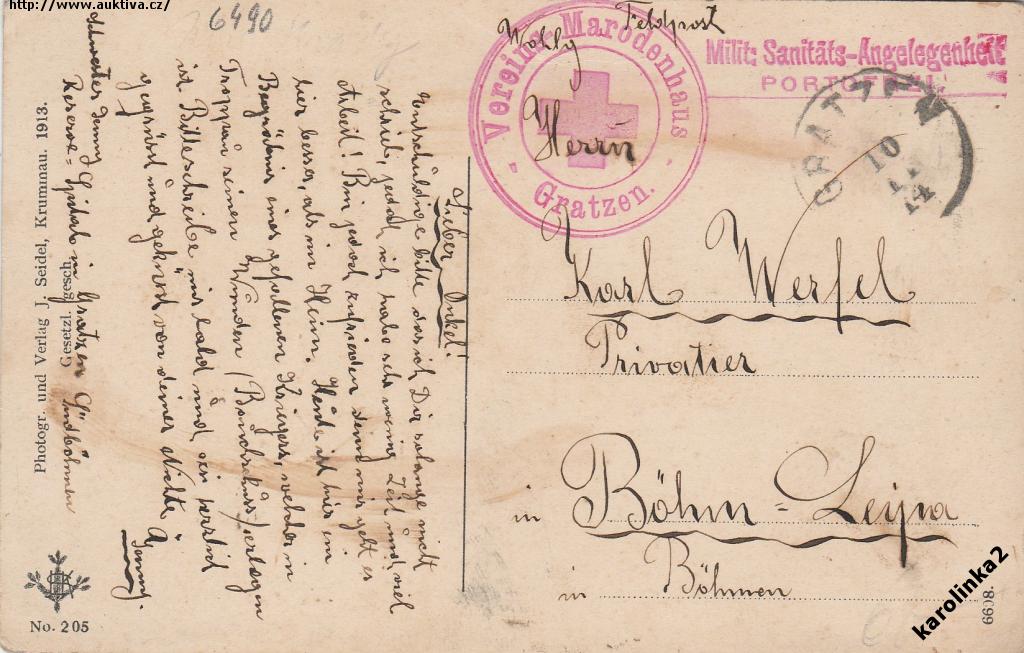 http://www.auktiva.cz/
6490
Feldpost
Wohlg
Herrn
Vereins-Marodenhaus
- Gratzen. -
Milit: Sanitäts-Angelegenheit
PORTOFREI.
GRATZEN
10
14
Karl Werfel
Privatier
in Böhm-Leipa
in Böhmen
Lieber Onkel!
Entschuldige bitte das ich Dir solange nicht
schrieb, jedoch ich habe sehr wenig Zeit und viel
Arbeit! Bin jedoch zufrieden denn mir geht es
hier besser, als im Heim. Heute ist hier ein
Begräbnis eines gefallenen Kriegers, welcher in
Troppau seinen Wunden (Bauchschuss) erlegen
ist. Bitte schreibe mir bald und sei herzlich
gegrüsst und geküsst von deiner Nichte
Jenny.
Schwester Jenny
Reserve-Spital in Gratzen Südböhmen
Photogr. und Verlag J. Seidel, Krummau. 1913.
Gesetzl. gesch.
No. 205
6608.
karolinka2